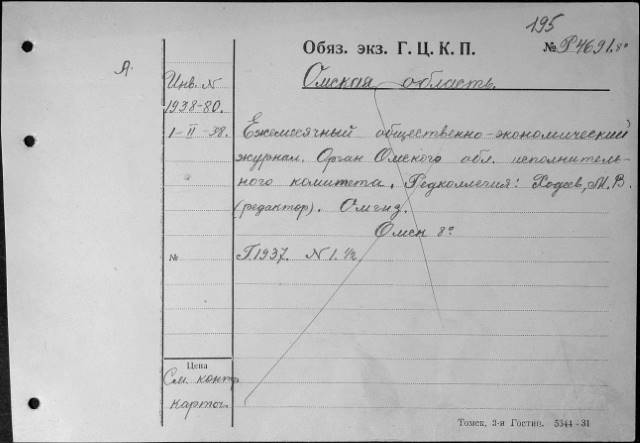 195
Обяз. экз. Г. Ц. К. П. № Р4691 8°
А.
Омская область.
Инв. N
1938-80.
1-II-38.
Ежемесячный общественно-экономический
журнал. Орган Омского обл. исполнитель-
ного комитета. Редколлегия: М. В.
(редактор). Омгиз.
Омск 8°
№
Г.1937. N 1.
Цена
См. контр.
карточ.
Томск, 3-я Гостип. 5344-31